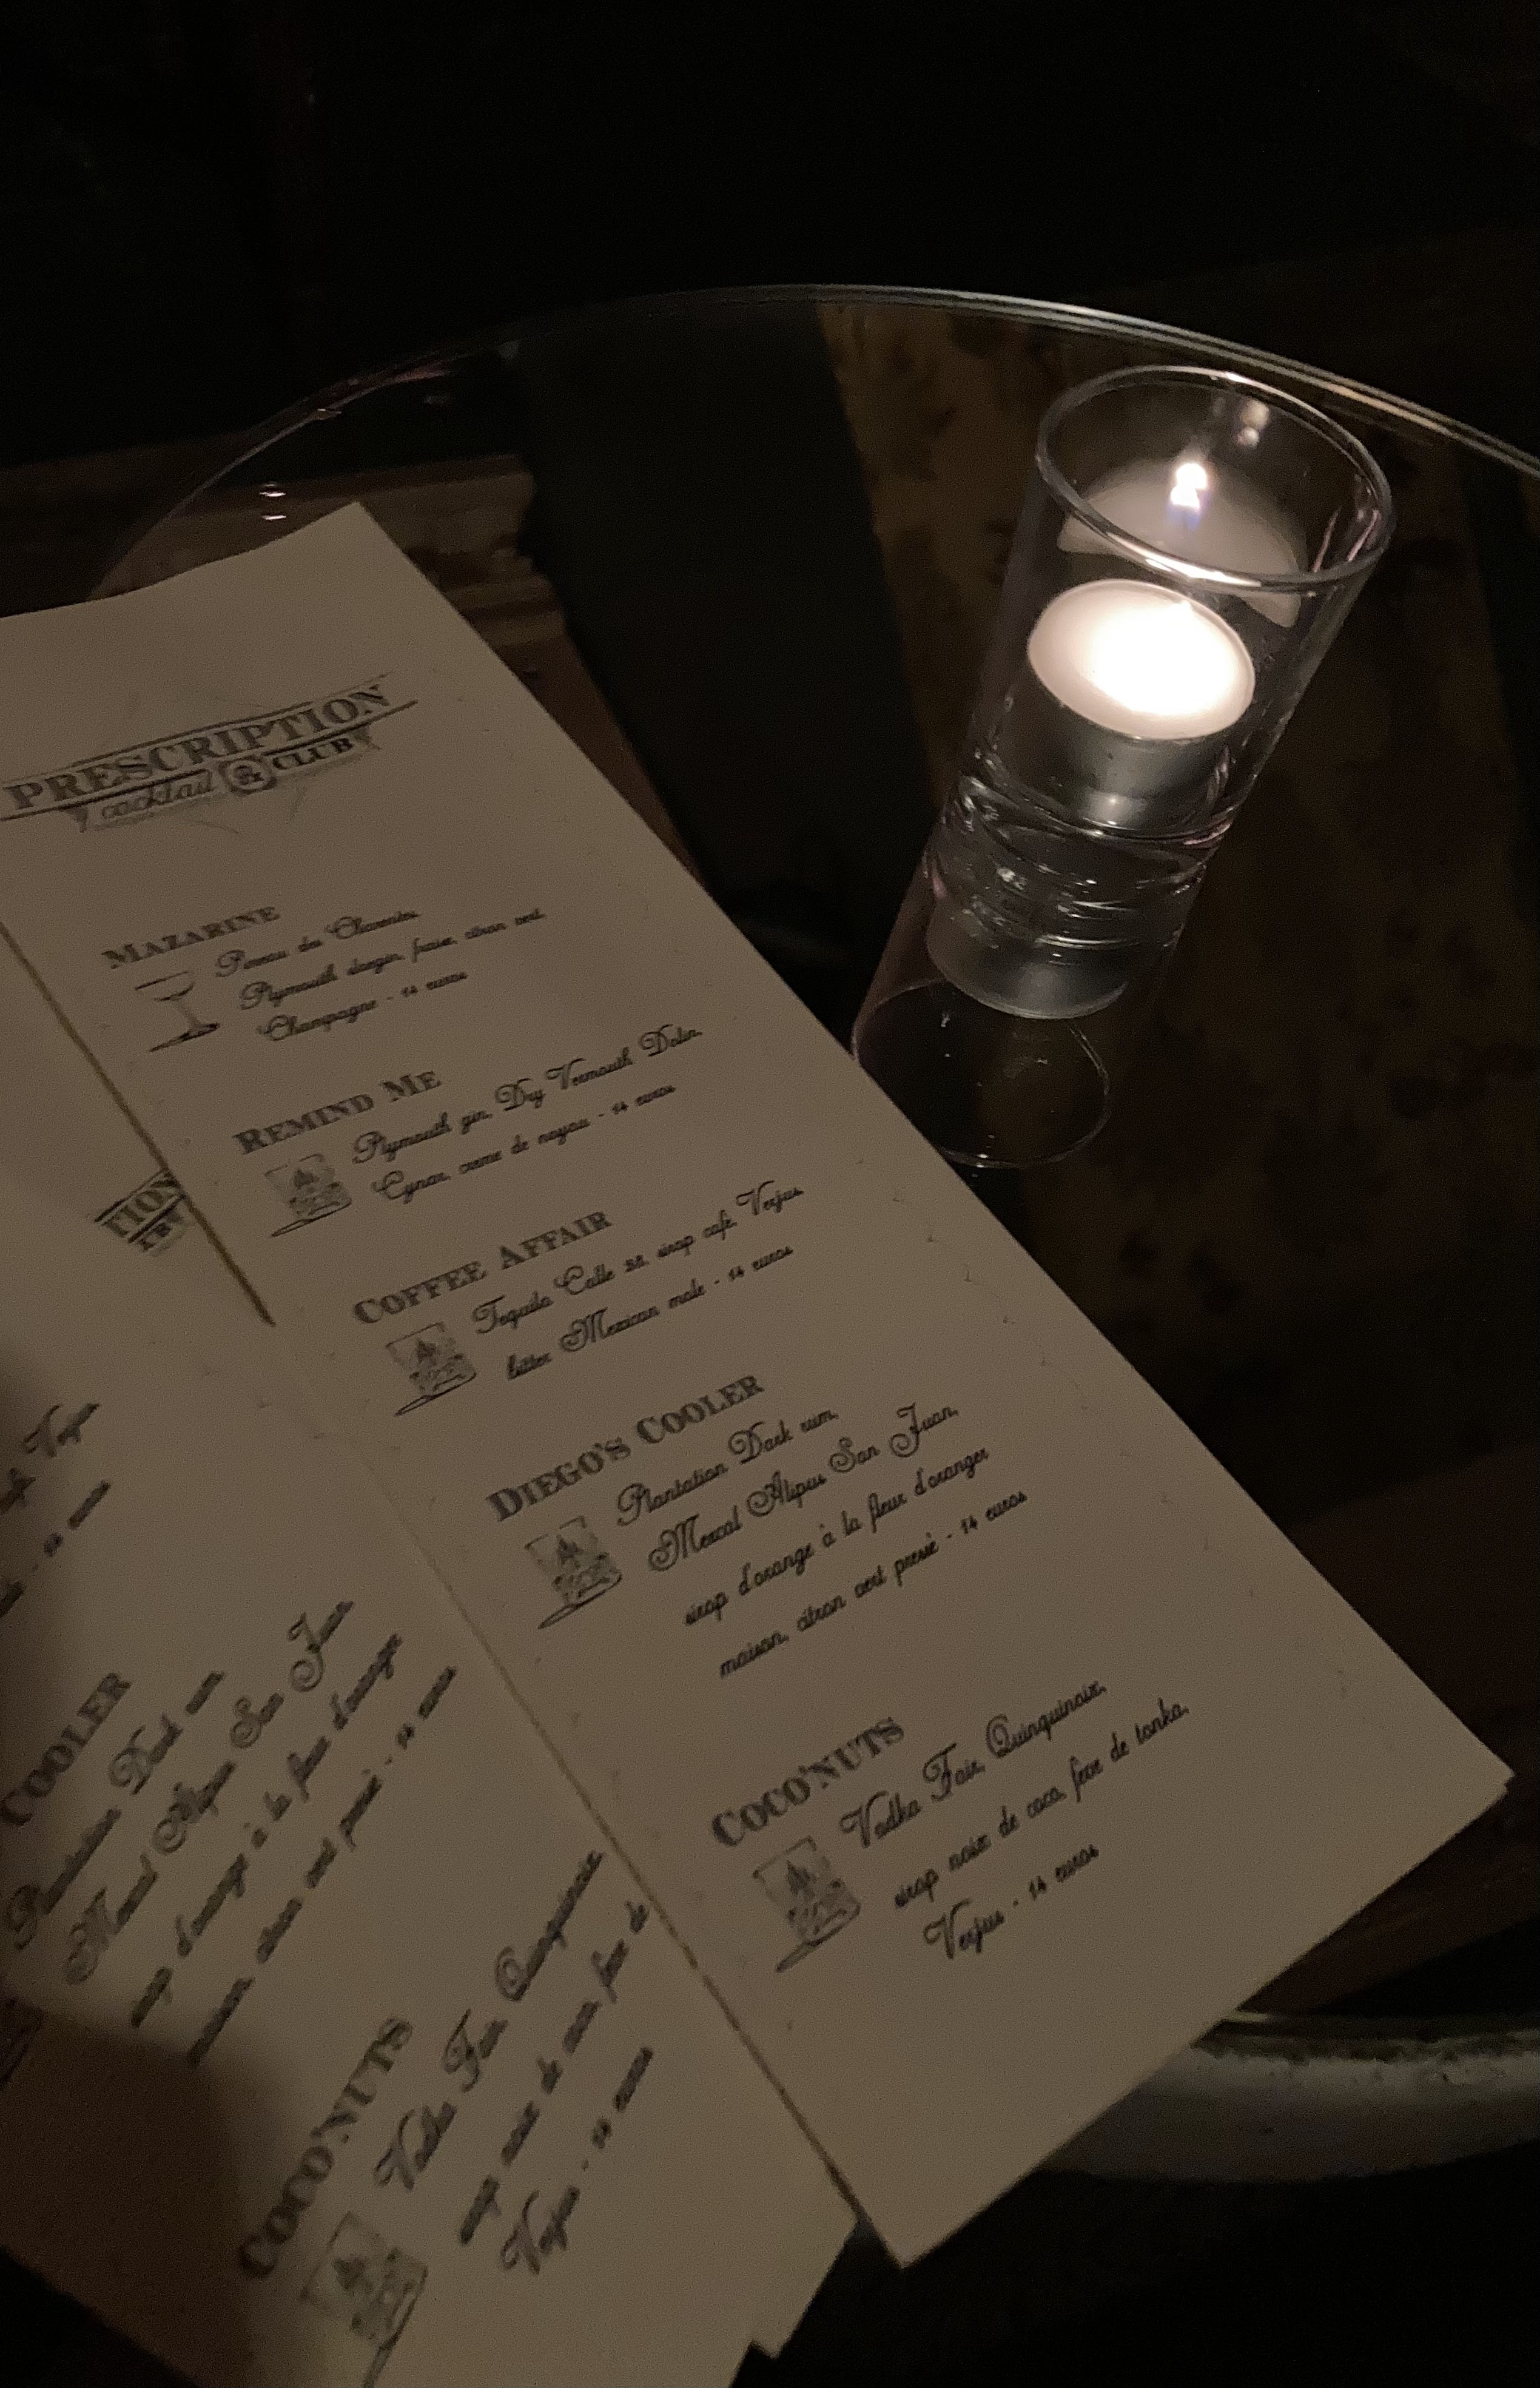 PRESCRIPTION
cocktail & CLUB
MAZARINE
Pineau des Charentes,
Plymouth sloegin, fraise, citron vert,
Champagne - 14 euros
REMIND ME
Plymouth gin, Dry Vermouth Dolin,
Cynar, creme de noyau - 14 euros
COFFEE AFFAIR
Tequila Calle 23, sirop café, Verjus,
bitter Mexican mole - 14 euros
DIEGO'S COOLER
Plantation Dark rum,
Mezcal Alipus San Juan,
sirop d'orange à la fleur d'oranger
maison, citron vert pressé - 14 euros
COCO'NUTS
Vodka Fair, Quinquinoix,
sirop noix de coco, feve de tonka,
Verjus - 14 euros
TION
UB
Verjus
14 euros
COOLER
Plantation Dark rum
Mezcal Alipus San Juan
sirop d'orange à la fleur d'oranger
maison, citron vert pressé - 14 euros
COCO'NUTS
Vodka Fair, Quinquinoix
sirop noix de coco, feve de
Verjus - 14 euros